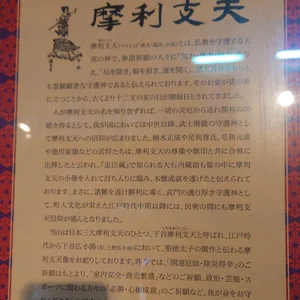 摩利支天
摩利支天（
）とは、仏教を守護する天
部の神で、参詣諸願の人々に「気力・体力・
え、「厄を除き、福を招き、運を開く」
も霊験顕著な守護神であると伝えられております。そのお姿が猪の背
に立つことから、古くより十二支の亥の日が御縁日とされてきました。
人が摩利支天の名を知り念ずれば、一切の災厄から逃れ勝利の功
徳を得るとして、我が国においては中世以降、武士階級の守護神として
摩利支天への信仰が広まりました。楠木正成や足利尊氏、毛利元就
や徳川家康などの武将たちは、摩利支天の尊像や旗印と共に合戦に
出陣したと云われ、「忠臣蔵」で知られる大石内蔵助も髻の中に摩利
支天の小像を入れて討ち入りに臨み、本懐成就を遂げたと伝えられて
おります。まさに、諸難を退け勝利に導く、武門の護り厚き守護神とし
て、町人文化が栄えた江戸時代中期以降には、民衆の間にも摩利支
天信仰が盛んとなりました。
当山は日本三大摩利支天のひとつ、「下谷摩利支天」と呼ばれ、江戸時
代から下谷広小路（現、上野広小路）において、聖徳太子の御作と伝わる摩
利支天像をお祀りしております。寺では、「開運厄除・除災得幸」のご
祈願はもとより、「家内安全・商売繁盛」などのご祈願、政治・芸能・ス
ポーツに関わる方々の「必勝・心願成就」のご祈願など、我が身をお守